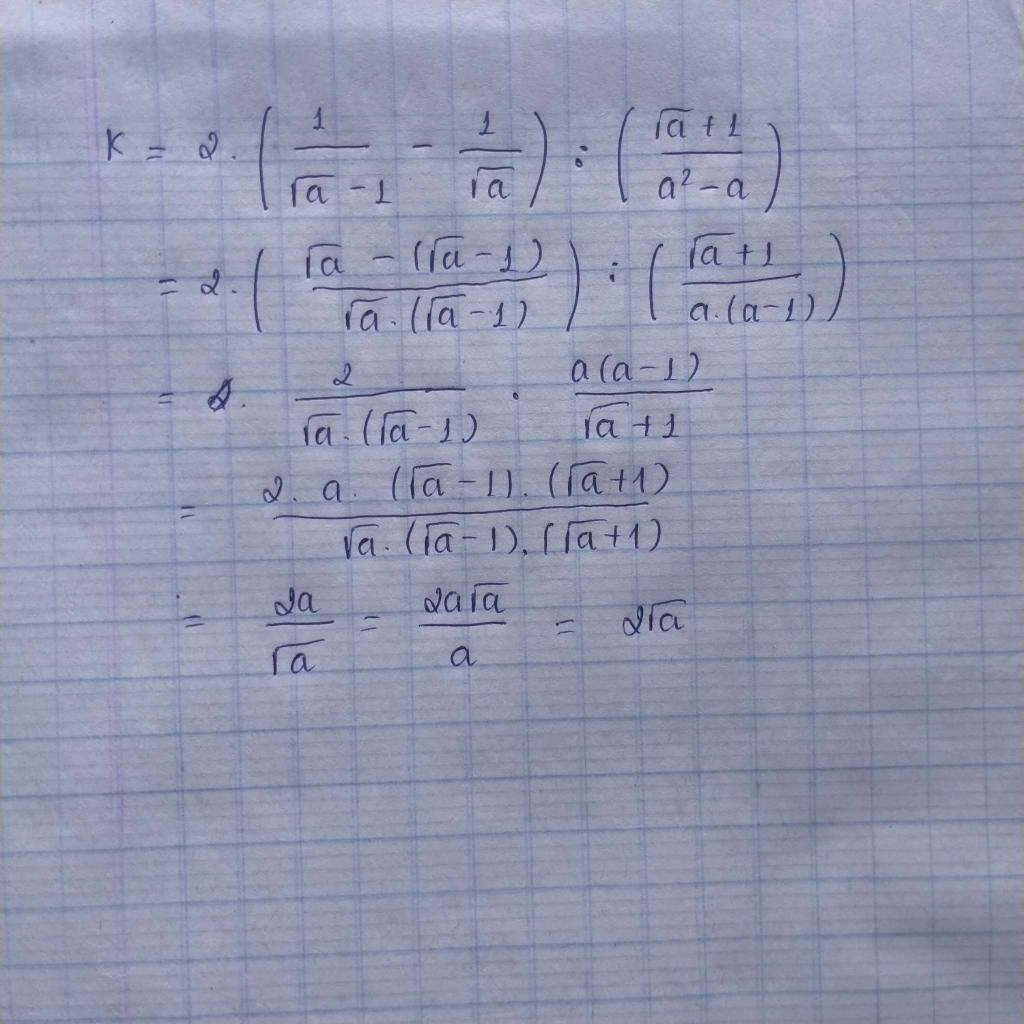 K = 2 . ( 1/(√a - 1) - 1/√a ) : ( (√a + 1)/(a² - a) )
= 2 . ( (√a - (√a - 1))/(√a . (√a - 1)) ) : ( (√a + 1)/(a . (a - 1)) )
= . 2/(√a . (√a - 1)) . a(a - 1)/(√a + 1)
= (2 . a . (√a - 1) . (√a + 1))/(√a . (√a - 1) . (√a + 1))
= 2a/√a = 2a√a/a = 2√a